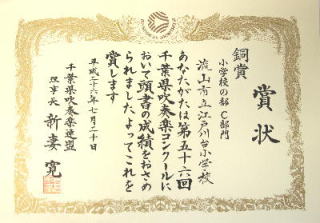 賞状
銅賞
小学校の部 C部門
流山市立江戸川台小学校
あなたがたは第五十六回
千葉県吹奏楽コンクールに
おいて頭書の成績をおさめ
られました よってこれを
賞します
平成二十六年七月二十日
千葉県吹奏楽連盟
理事長 新妻 寛